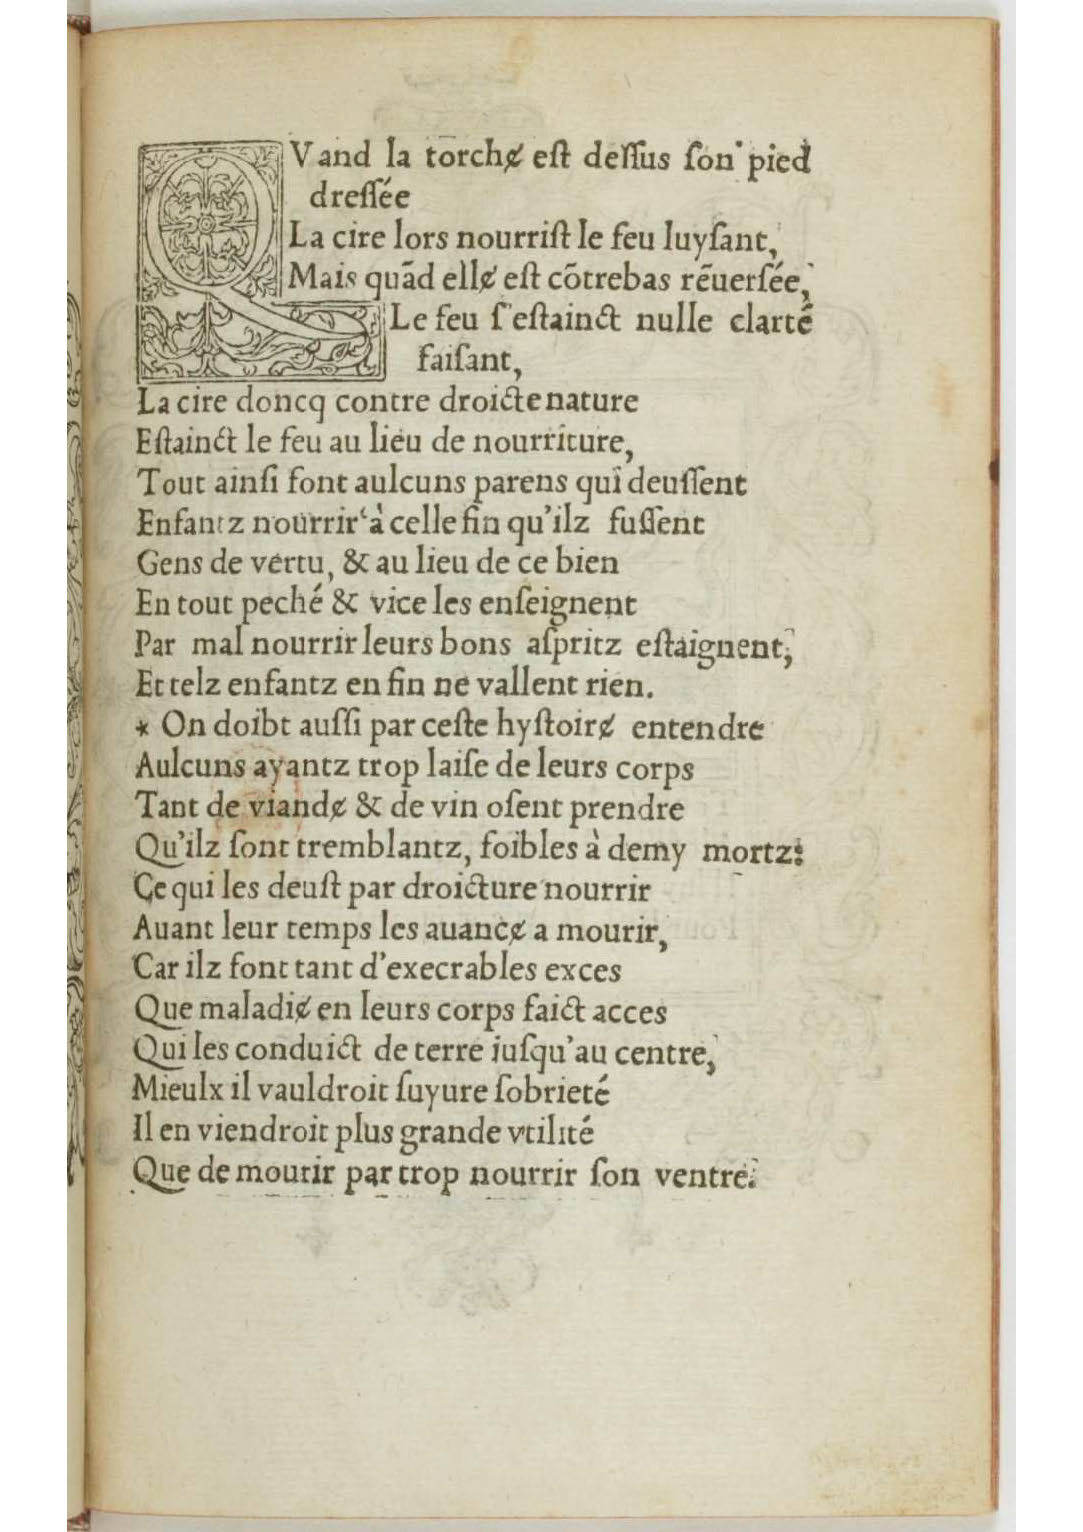 QVand la torchɇ eſt deſſus ſon pied
dreſſée
La cire lors nourriſt le feu luyſant,
Mais quād ellɇ eſt cōtrebas rēuerſée,
Le feu ſ'eſtainct nulle clarté
faiſant,
La cire doncq contre droicte nature
Eſtainct le feu au lieu de nourriture,
Tout ainſi font aulcuns parens qui deuſſent
Enfantz nourrir à celle fin qu'ilz fuſſent
Gens de vertu, & au lieu de ce bien
En tout peché & vice les enſeignent
Par mal nourrir leurs bons aſpritz eſtaignent,
Et telz enfantz en fin ne vallent rien.
* On doibt auſſi par ceſte hyſtoirɇ entendre
Aulcuns ayantz trop laiſe de leurs corps
Tant de viandɇ & de vin oſent prendre
Qu'ilz ſont tremblantz, foibles à demy mortz:
Ce qui les deuſt par droicture nourrir
Auant leur temps les auancɇ a mourir,
Car ilz font tant d'execrables exces
Que maladiɇ en leurs corps faict acces
Qui les conduict de terre iuſqu'au centre,
Mieulx il vauldroit ſuyure ſobrieté
Il en viendroit plus grande vtilité
Que de mourir par trop nourrir ſon ventre.